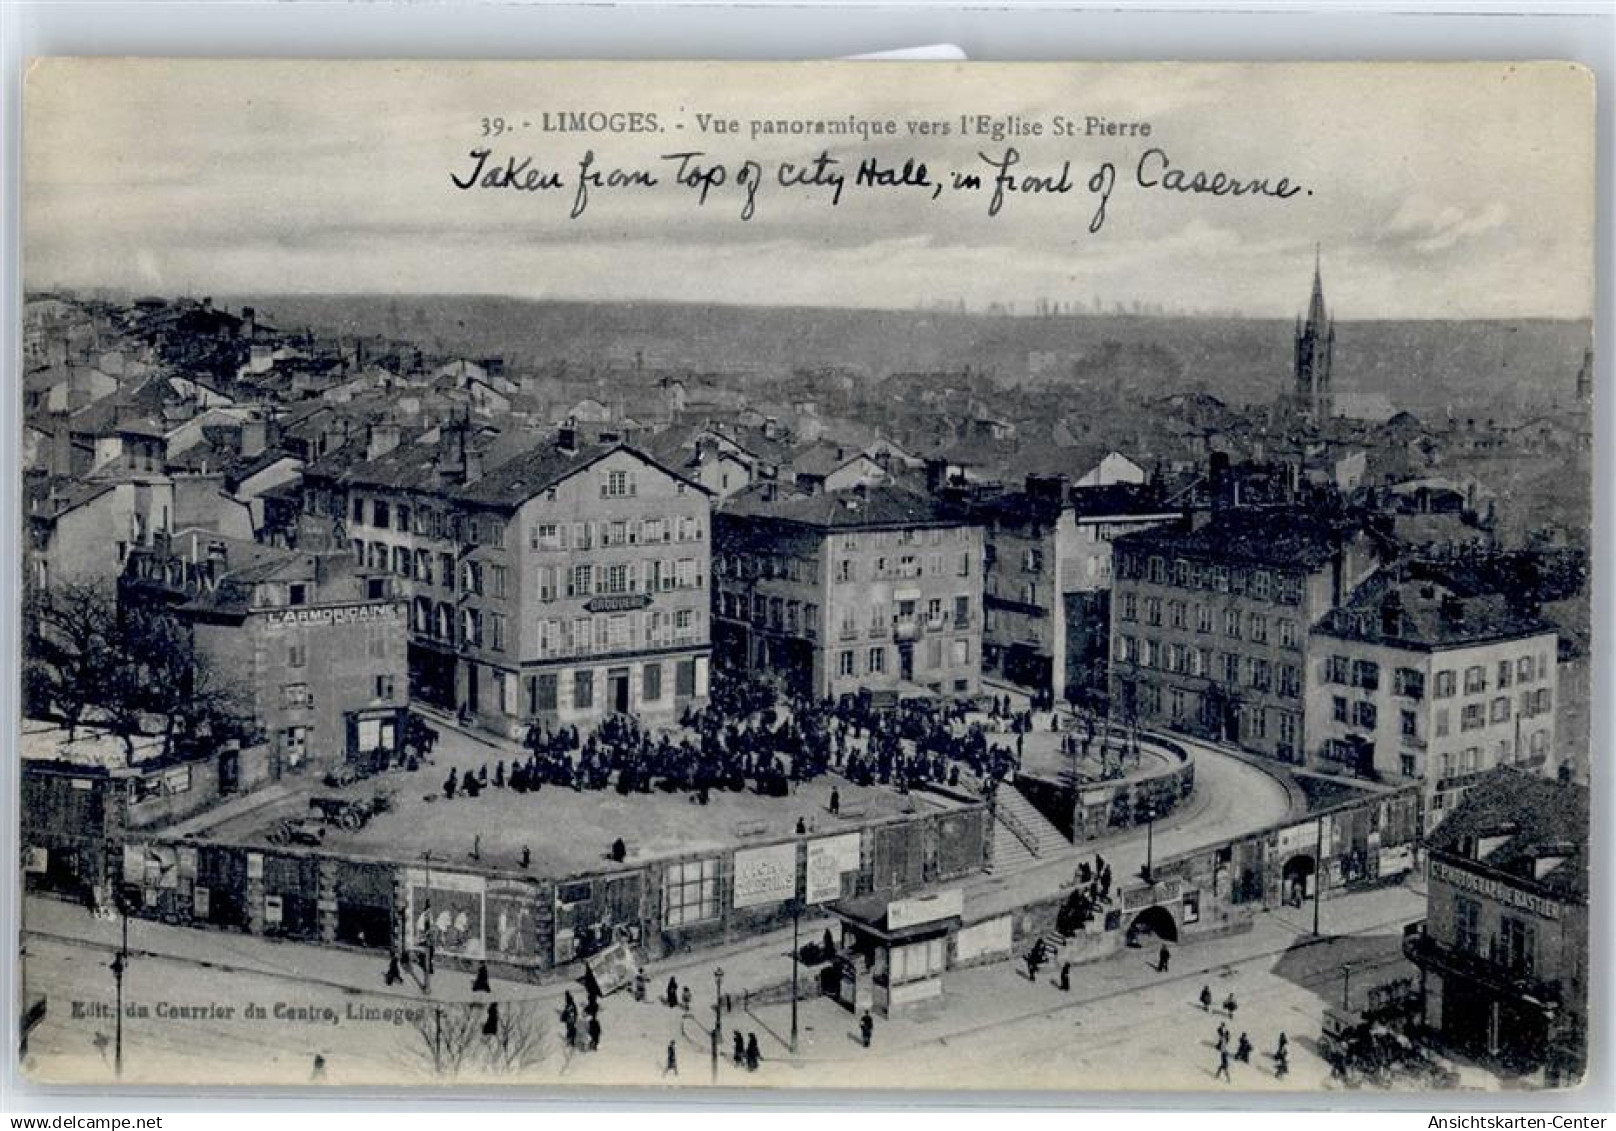 39. - LIMOGES. - Vue panoramique vers l'Eglise St-Pierre
Taken from Top of city Hall, in front of Caserne.
L'ARMORICAINE
DROUYERE
Edit. du Courrier du Centre, Limoges
oldthing.de
Ansichtskarten-Center